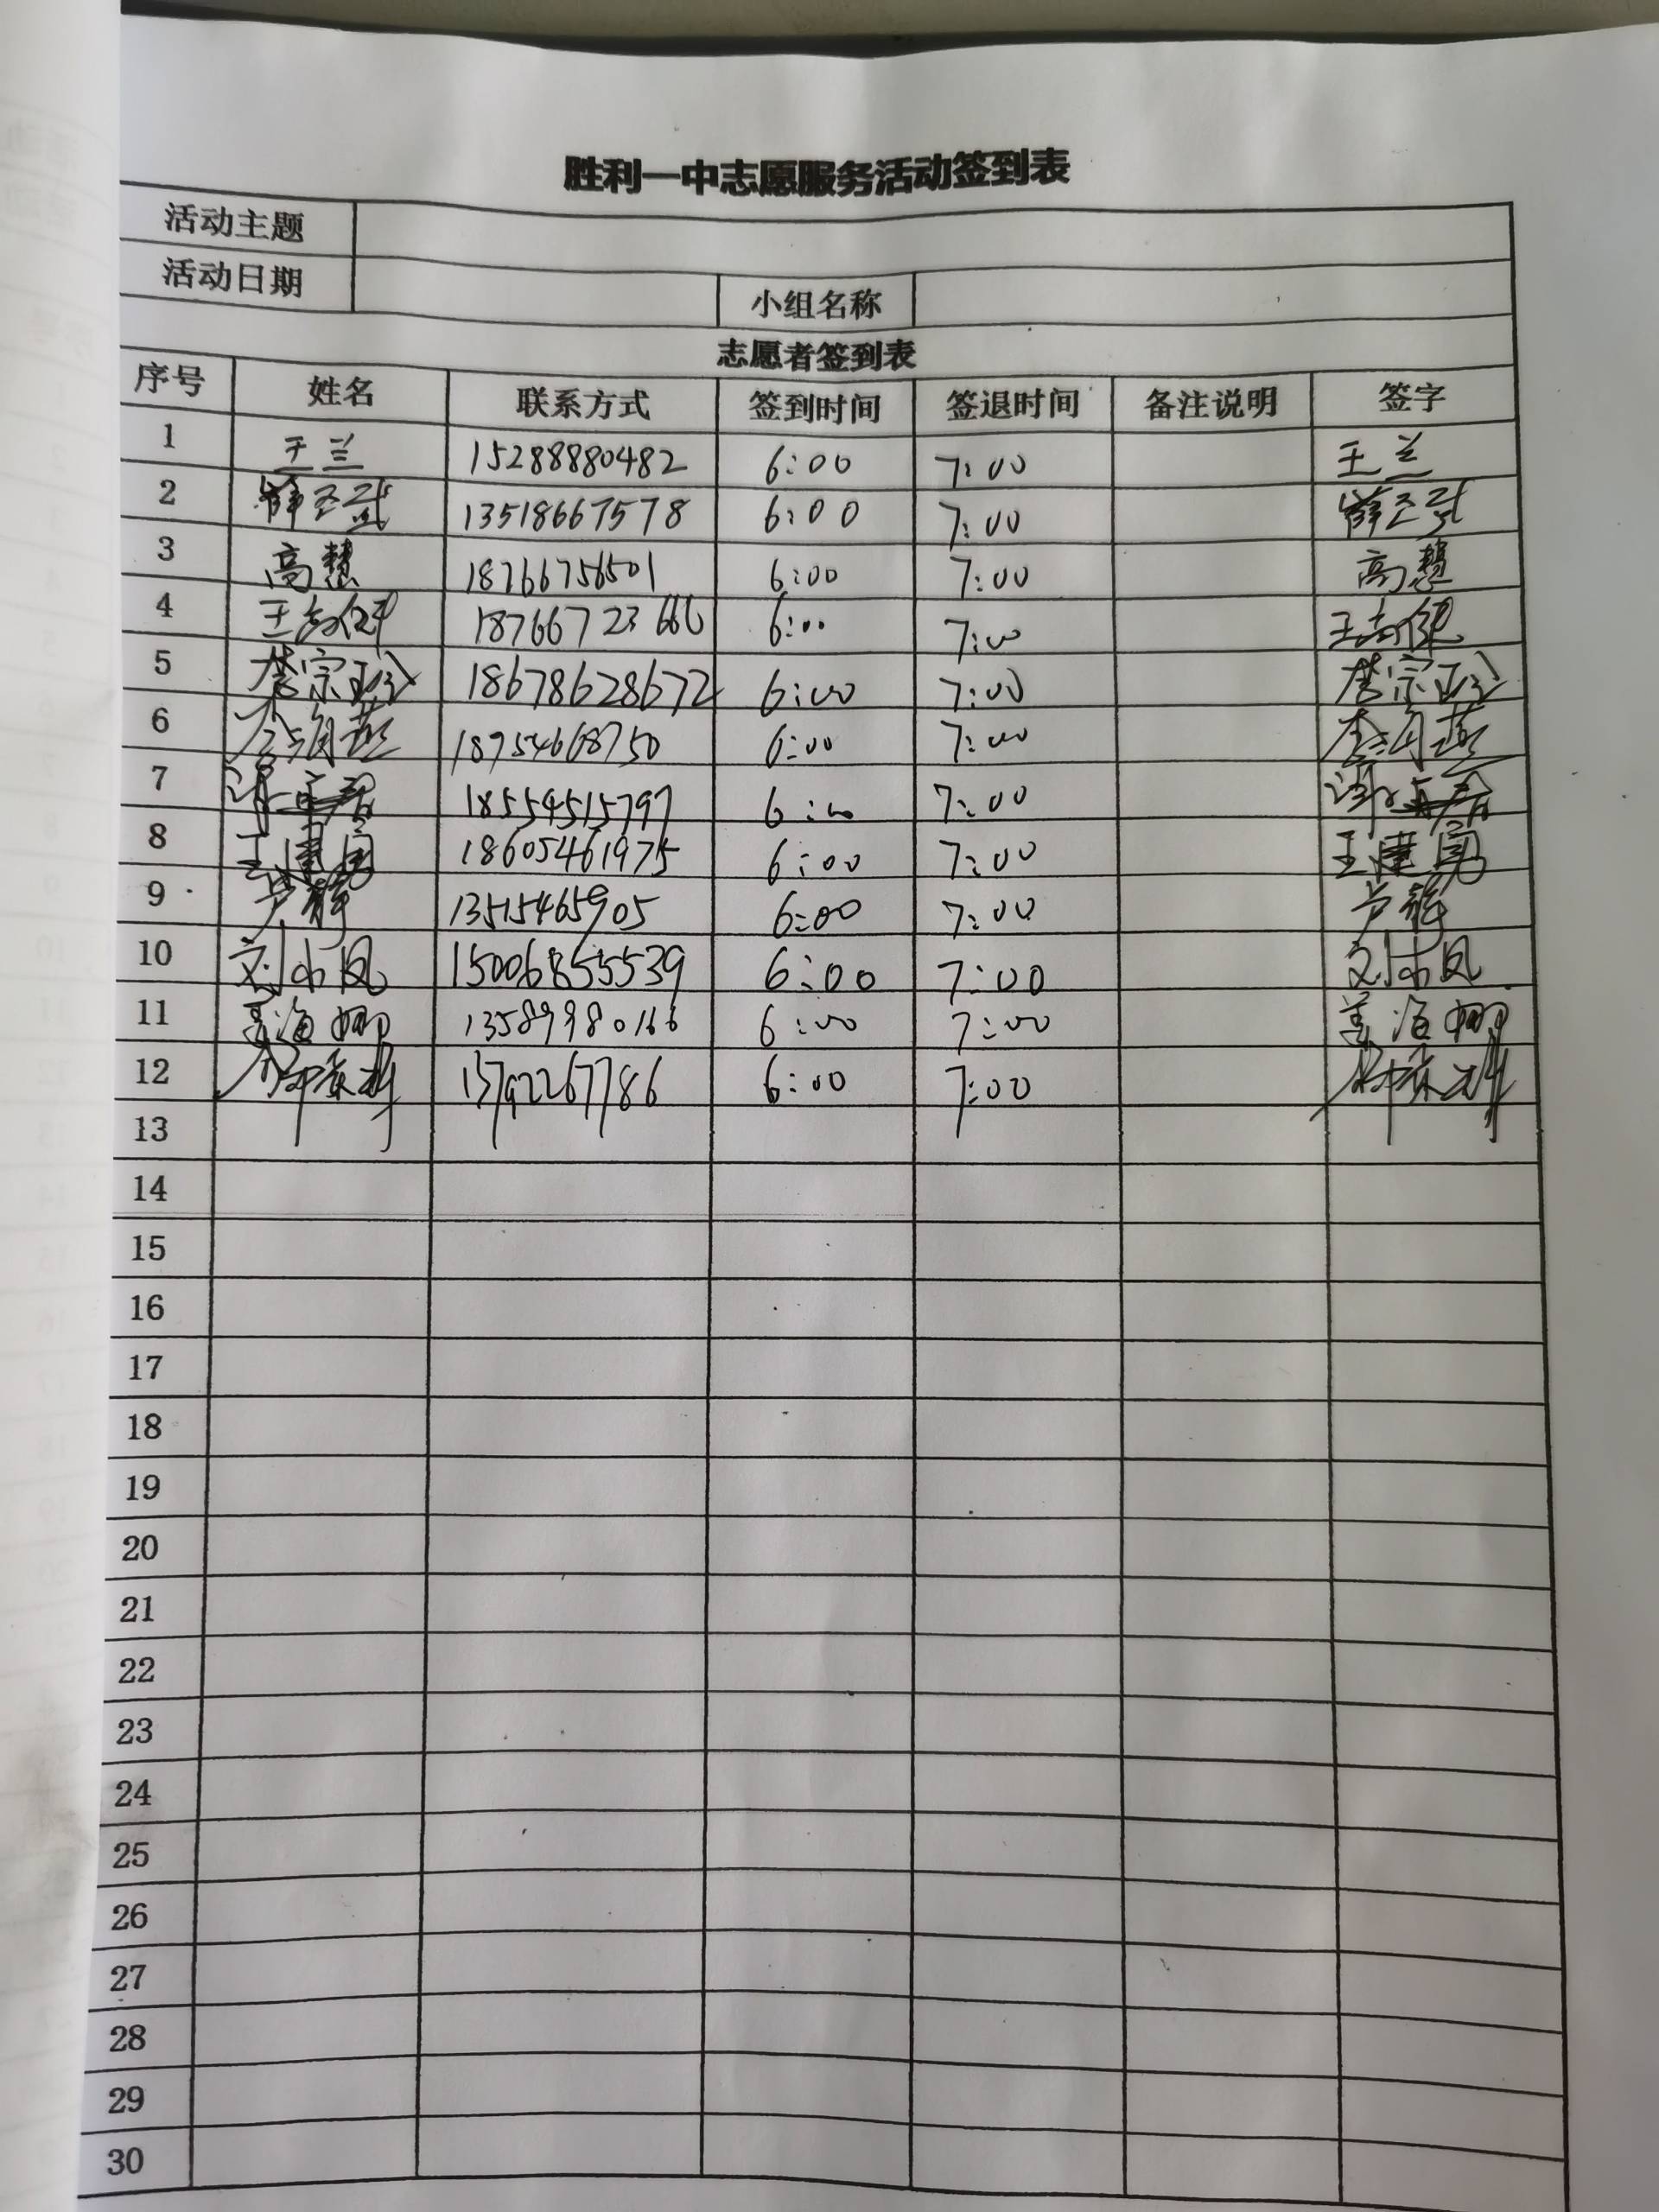 胜利一中志愿服务活动签到表
活动主题
活动日期 小组名称
志愿者签到表
序号 姓名 联系方式 签到时间 签退时间 备注说明 签字
1 王兰 15288880482 6:00 7:00 王兰
2 13518667578 6:00 7:00
3 高慧 18766756501 6:00 7:00 高慧
4 18766723666 6:00 7:00
5 18678628672 6:00 7:00
6 18954668750 6:00 7:00
7 18554515797 6:00 7:00
8 王建勇 18605461975 6:00 7:00 王建勇
9 卢静 13515465905 6:00 7:00 卢静
10 15006855539 6:00 7:00
11 姜海娜 13589980166 6:00 7:00 姜海娜
12 13792267786 6:00 7:00
13
14
15
16
17
18
19
20
21
22
23
24
25
26
27
28
29
30